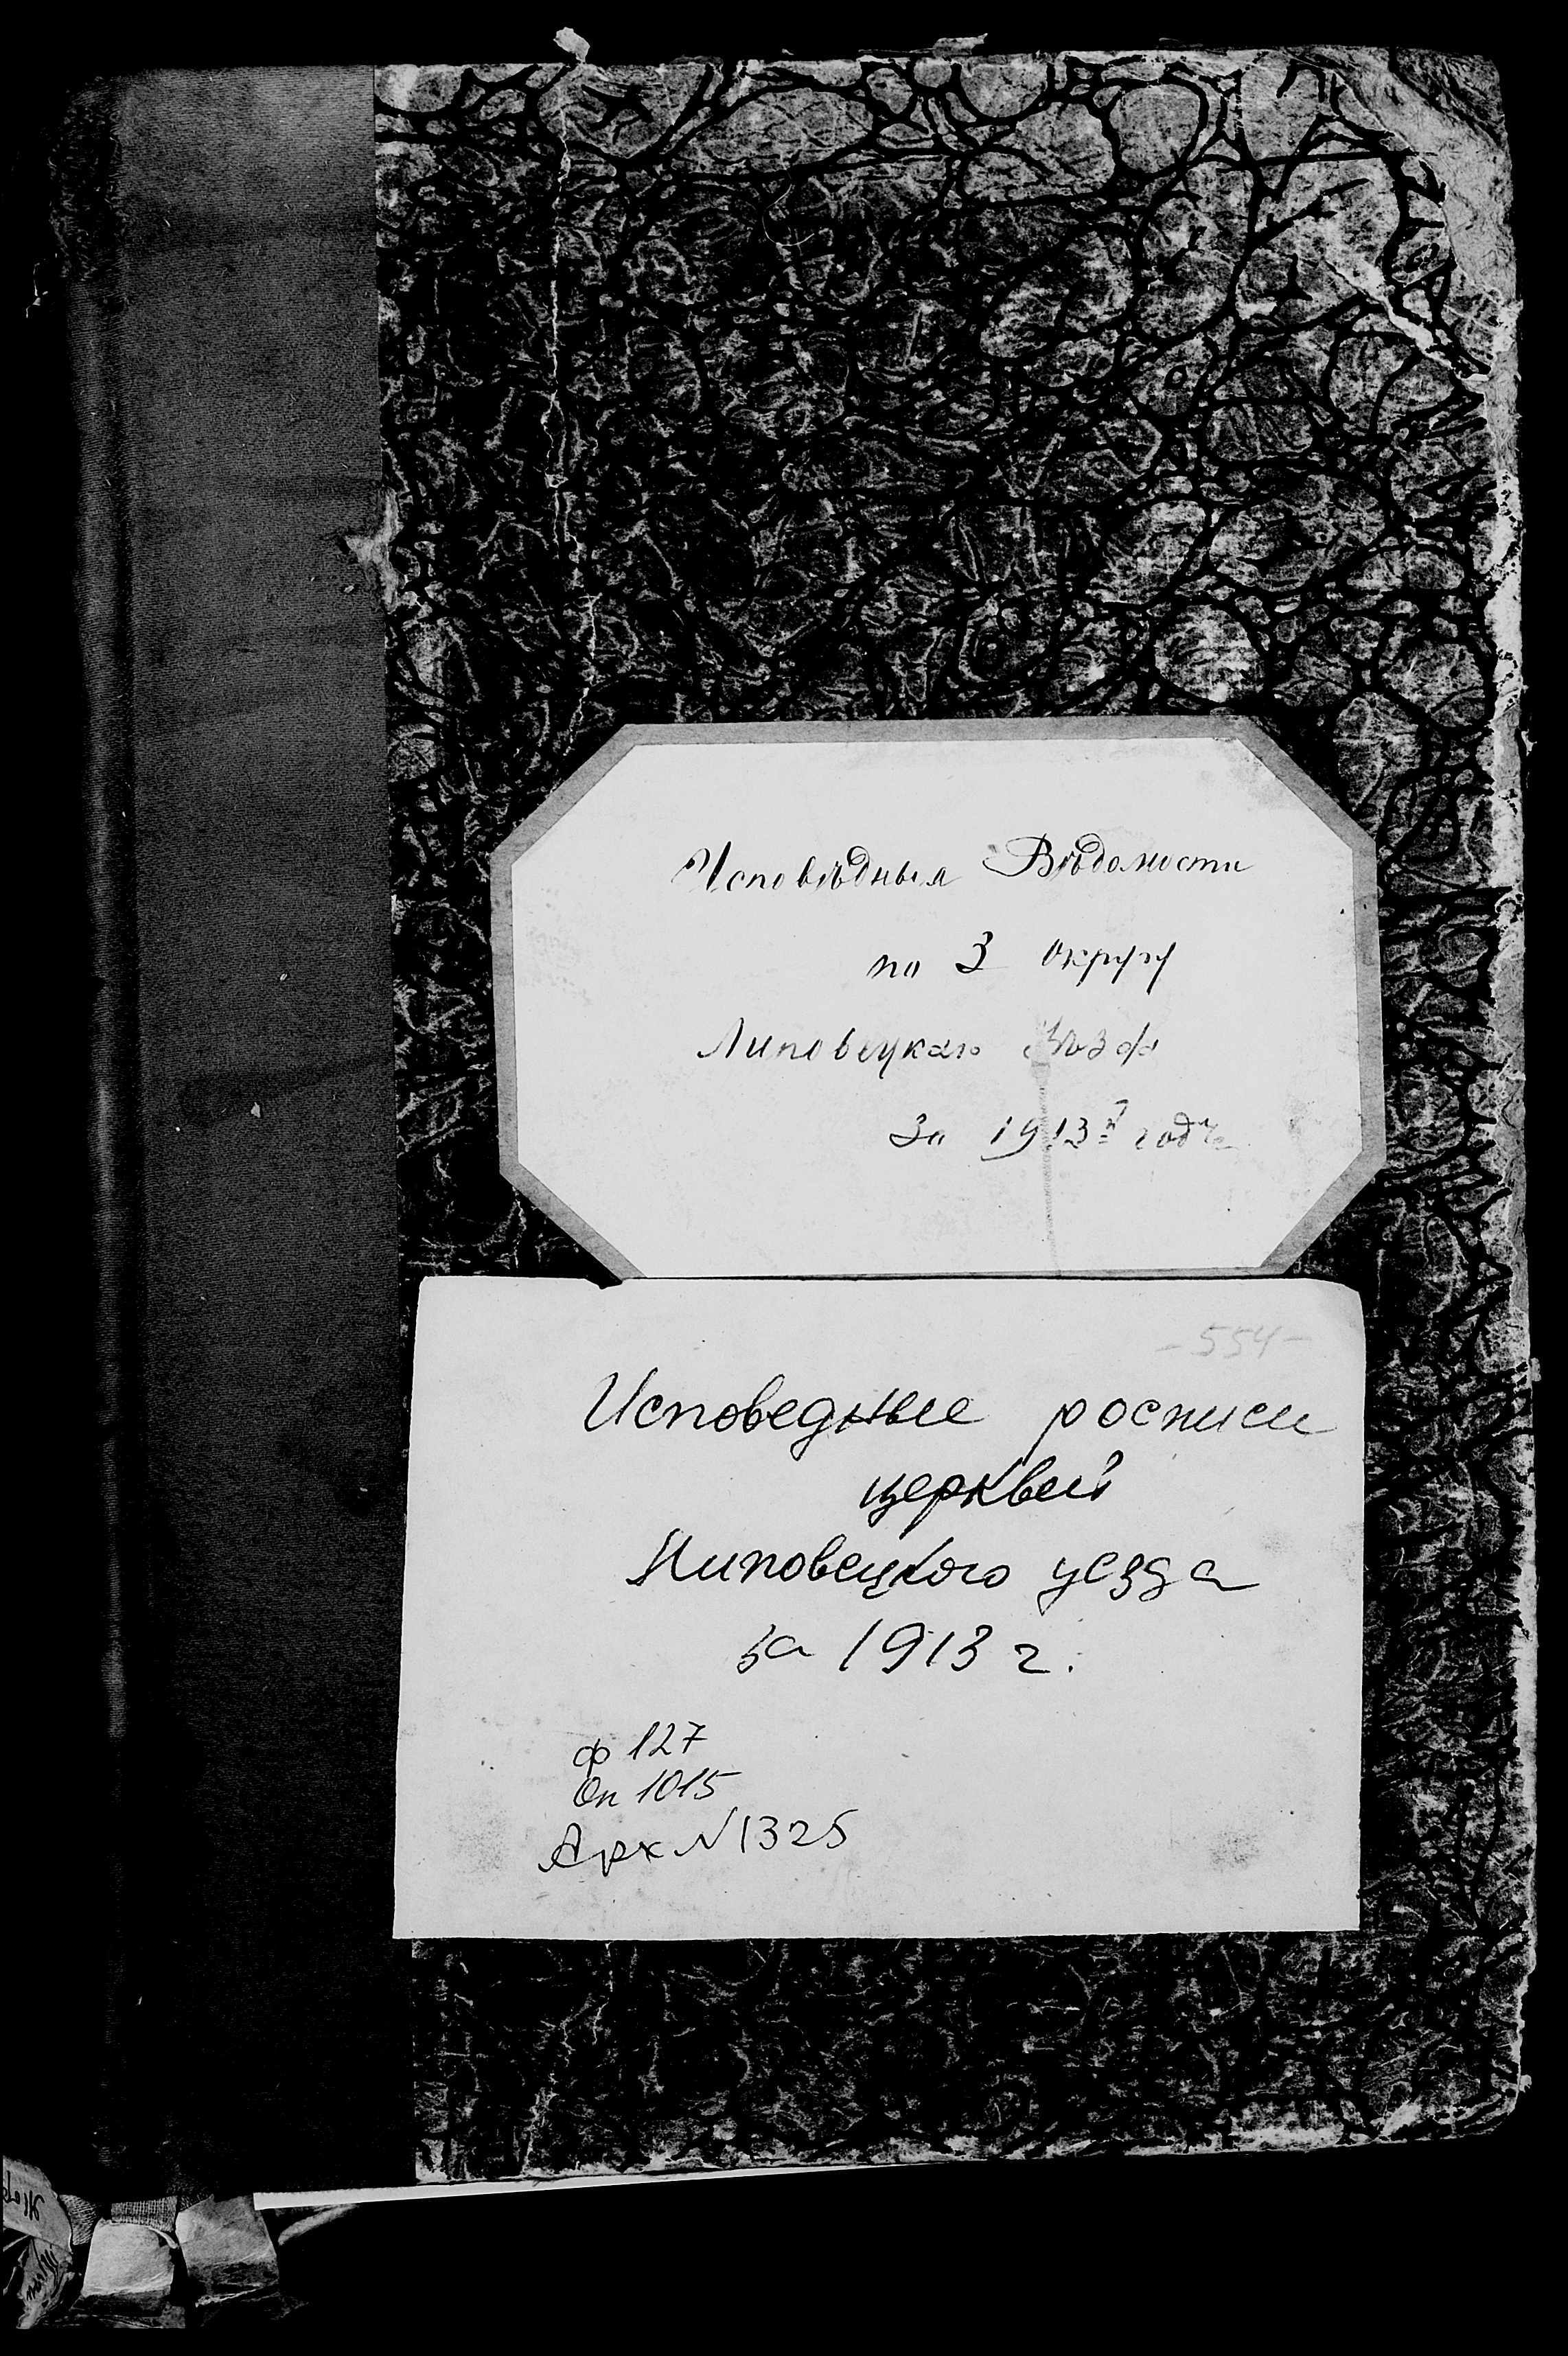 Исповѣдныя Вѣдомости
по 3 округу
Липовецкаго Уѣзда
За 1913й годъ
-554-
Исповедные росписи
церквей
Липовецкого уезда
за 1913 г.
ф 127
Оп 1015
Арх N 1325